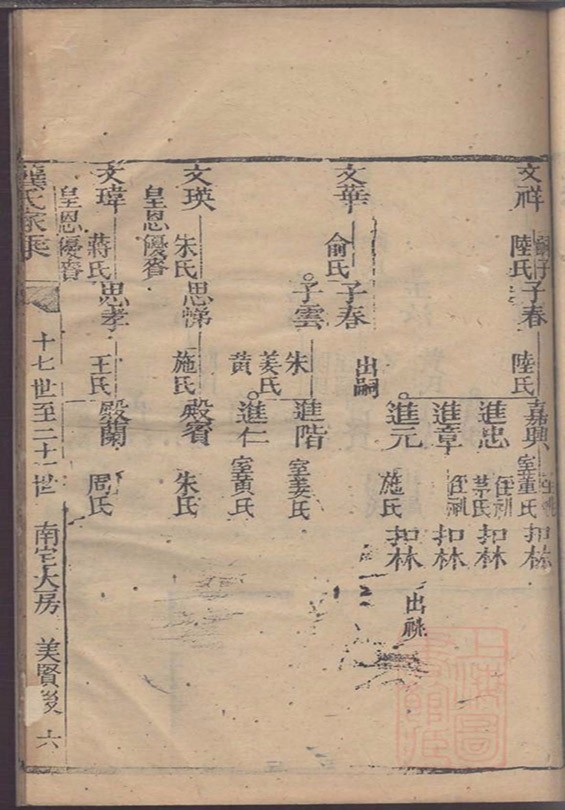 文祥
嗣子
陸氏
子春
陸氏
嘉興
室董氏
扣林
進忠
芽氏
扣林
進章
扣林
進元
施氏
扣林
出祧
文華
俞氏
子春
出嗣
子雲
朱
姜氏
黄
進階
室姜氏
進仁
室黄氏
文瑛
朱氏
皇恩優賚
思悌
施氏
殿賓
朱氏
文瑋
蔣氏
皇恩優賚
思孝
王氏
殿蘭
周氏
龔氏家乘
十七世至二十一世
南宅大房
美賢
六
上海圖書館藏